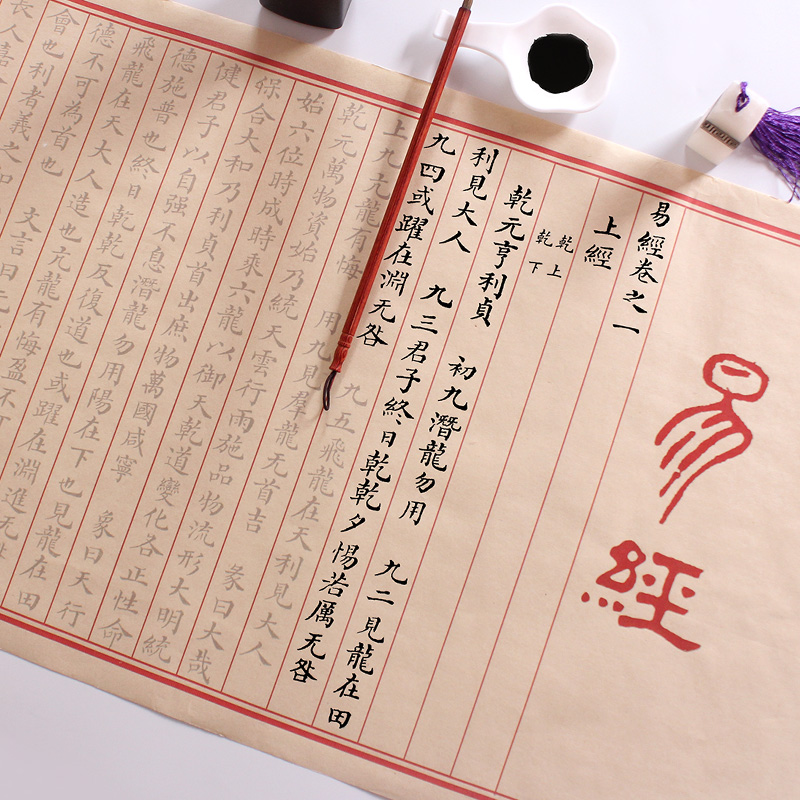 易經
易經卷之一
上經
乾上
乾下
乾元亨利貞 初九潛龍勿用 九二見龍在田
利見大人 九三君子終日乾乾夕惕若厲无咎
九四或躍在淵无咎 九五飛龍在天利見大人
上九亢龍有悔 用九見群龍无首吉 彖曰大哉
乾元萬物資始乃統天雲行雨施品物流形大明統
始六位時成時乘六龍以御天乾道變化各正性命
保合大和乃利貞首出庶物萬國咸寧 象曰天行
健君子以自强不息潛龍勿用陽在下也見龍在田
德施普也終日乾乾反復道也或躍在淵進无
飛龍在天大人造也亢龍有悔盈不可
德不可為首也 文言曰元
會也利者義之和
長人嘉